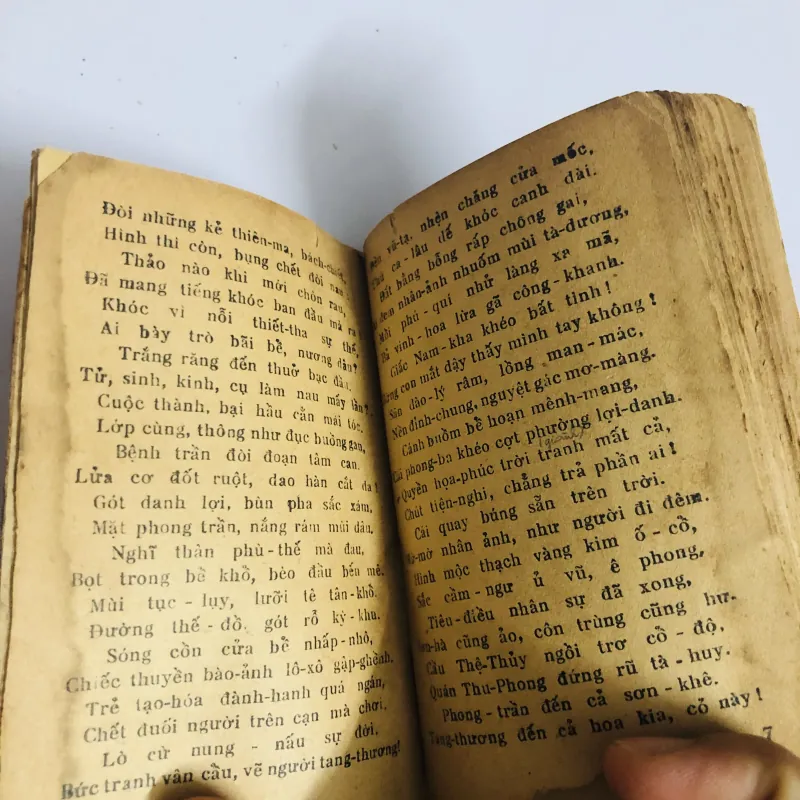 Đòi những kẻ thiên-ma, bách-chiết,
Hình thì còn, bụng chết đòi nau
Thảo nào khi mới chôn rau,
Đã mang tiếng khóc ban đầu mà ra
Khóc vì nỗi thiết-tha sự thế,
Ai bày trò bãi bể, nương dâu?
Trắng răng đến thuở bạc đầu,
Tử, sinh, kinh, cụ làm nau mấy lần?
Cuộc thành, bại hầu cằn mái tóc,
Lớp cùng, thông như đục buồng gan,
Bệnh trần đòi đoạn tâm can,
Lửa cơ đốt ruột, dao hàn cắt da!
Gót danh lợi, bùn pha sắc xám,
Mặt phong trần, nắng rám mùi dâu,
Nghĩ thân phù-thế mà đau,
Bọt trong bể khổ, bèo đầu bến mê,
Mùi tục-lụy, lưỡi tê tân-khổ,
Đường thế-đồ, gót rỗ kỳ-khu.
Sóng cồn cửa bể nhấp-nhô,
Chiếc thuyền bào-ảnh lô-xô gập-ghềnh.
Trẻ tạo-hóa đành-hanh quá ngán,
Chết đuối người trên cạn mà chơi.
Lò cừ nung-nấu sự đời,
Bức tranh vân cẩu, vẽ người tang-thương!
vũ-tạ, nhện chăng cửa mốc,
ca-lâu dế khóc canh dài.
Đất bằng bỗng rấp chông gai,
đem nhân-ảnh nhuốm mùi tà-dương,
Mồi phú-quí nhử làng xa mã,
Bả vinh-hoa lừa gã công-khanh.
Giấc Nam-kha khéo bất tình!
con mắt dậy thấy mình tay không!
Sân đào-lý râm, lồng man-mác,
Nền đỉnh-chung, nguyệt gác mơ-màng.
Cánh buồm bể hoạn mênh-mang,
Cái phong-ba khéo cợt phường lợi-danh.
Quyền họa-phúc trời tranh mất cả,
Chút tiện-nghi, chẳng trả phần ai!
Cái quay búng sẵn trên trời.
Mờ-mờ nhân ảnh, như người đi đêm.
Hình mộc thạch vàng kim ố-cồ,
Sắc cầm-ngư ủ vũ, ê phong,
Tiêu-điều nhân sự đã xong,
-hà cũng ảo, côn trùng cũng hư.
Cầu Thệ-Thủy ngồi trơ cồ-độ,
Quán Thu-Phong đứng rũ tà-huy.
Phong-trần đến cả sơn-khê.
Tang-thương đến cả hoa kia, cỏ này!
7